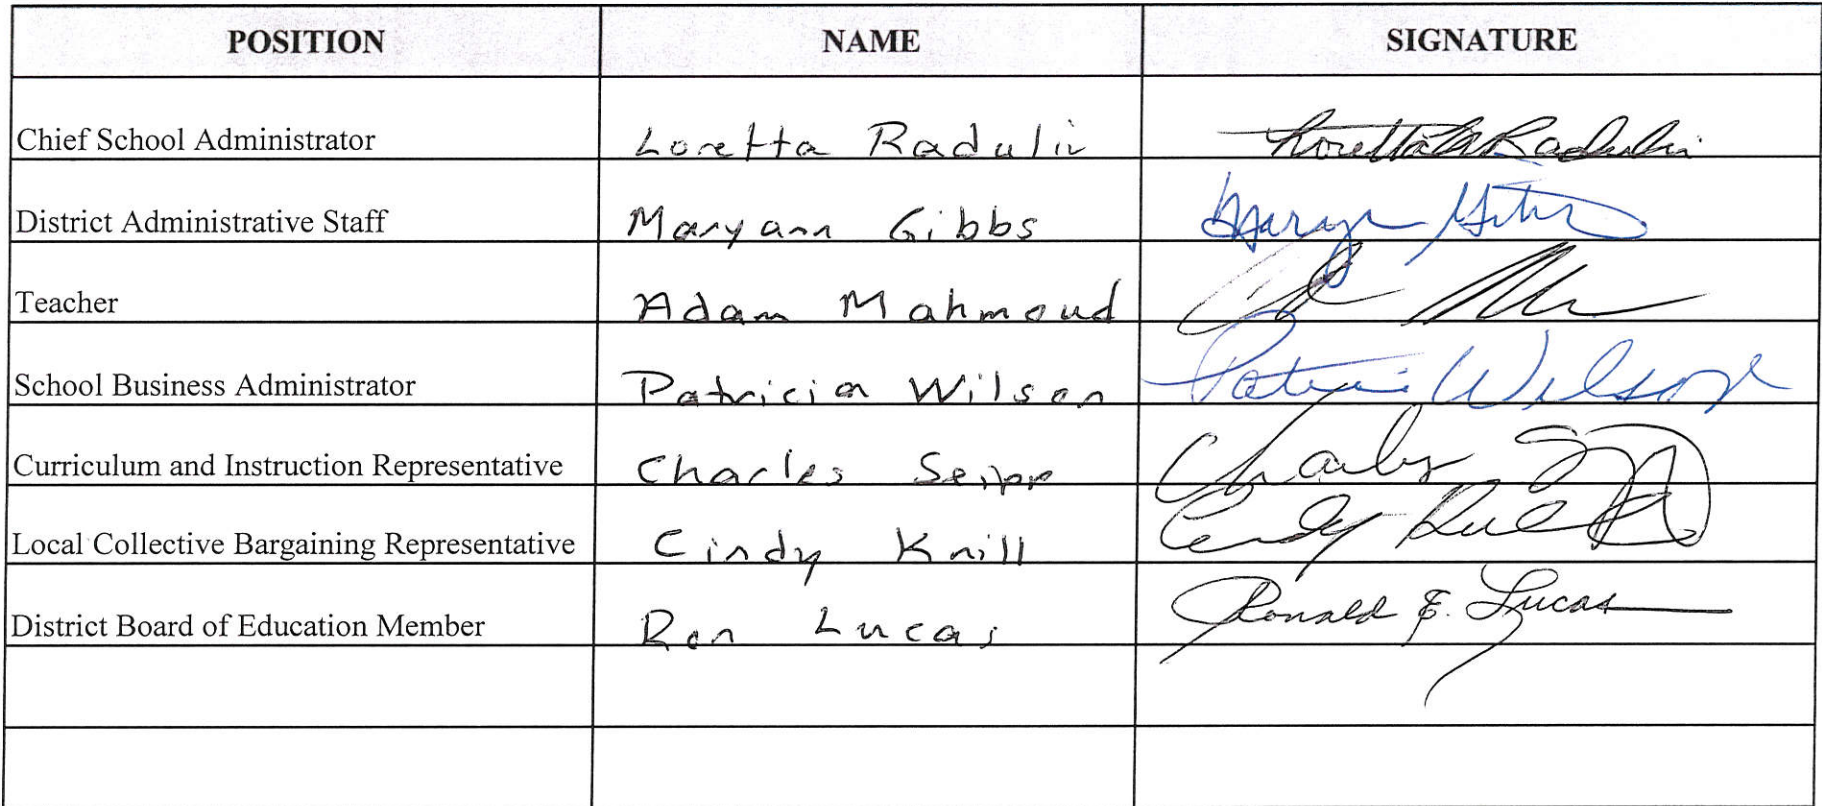 POSITION NAME SIGNATURE
Chief School Administrator Loretta Radulic Loretta Radulic
District Administrative Staff Maryann Gibbs
Teacher Adam Mahmoud
School Business Administrator Patricia Wilson Patricia Wilson
Curriculum and Instruction Representative Charles Seipp Charles
Local Collective Bargaining Representative Cindy Knill Cindy
District Board of Education Member Ron Lucas Ronald E. Lucas